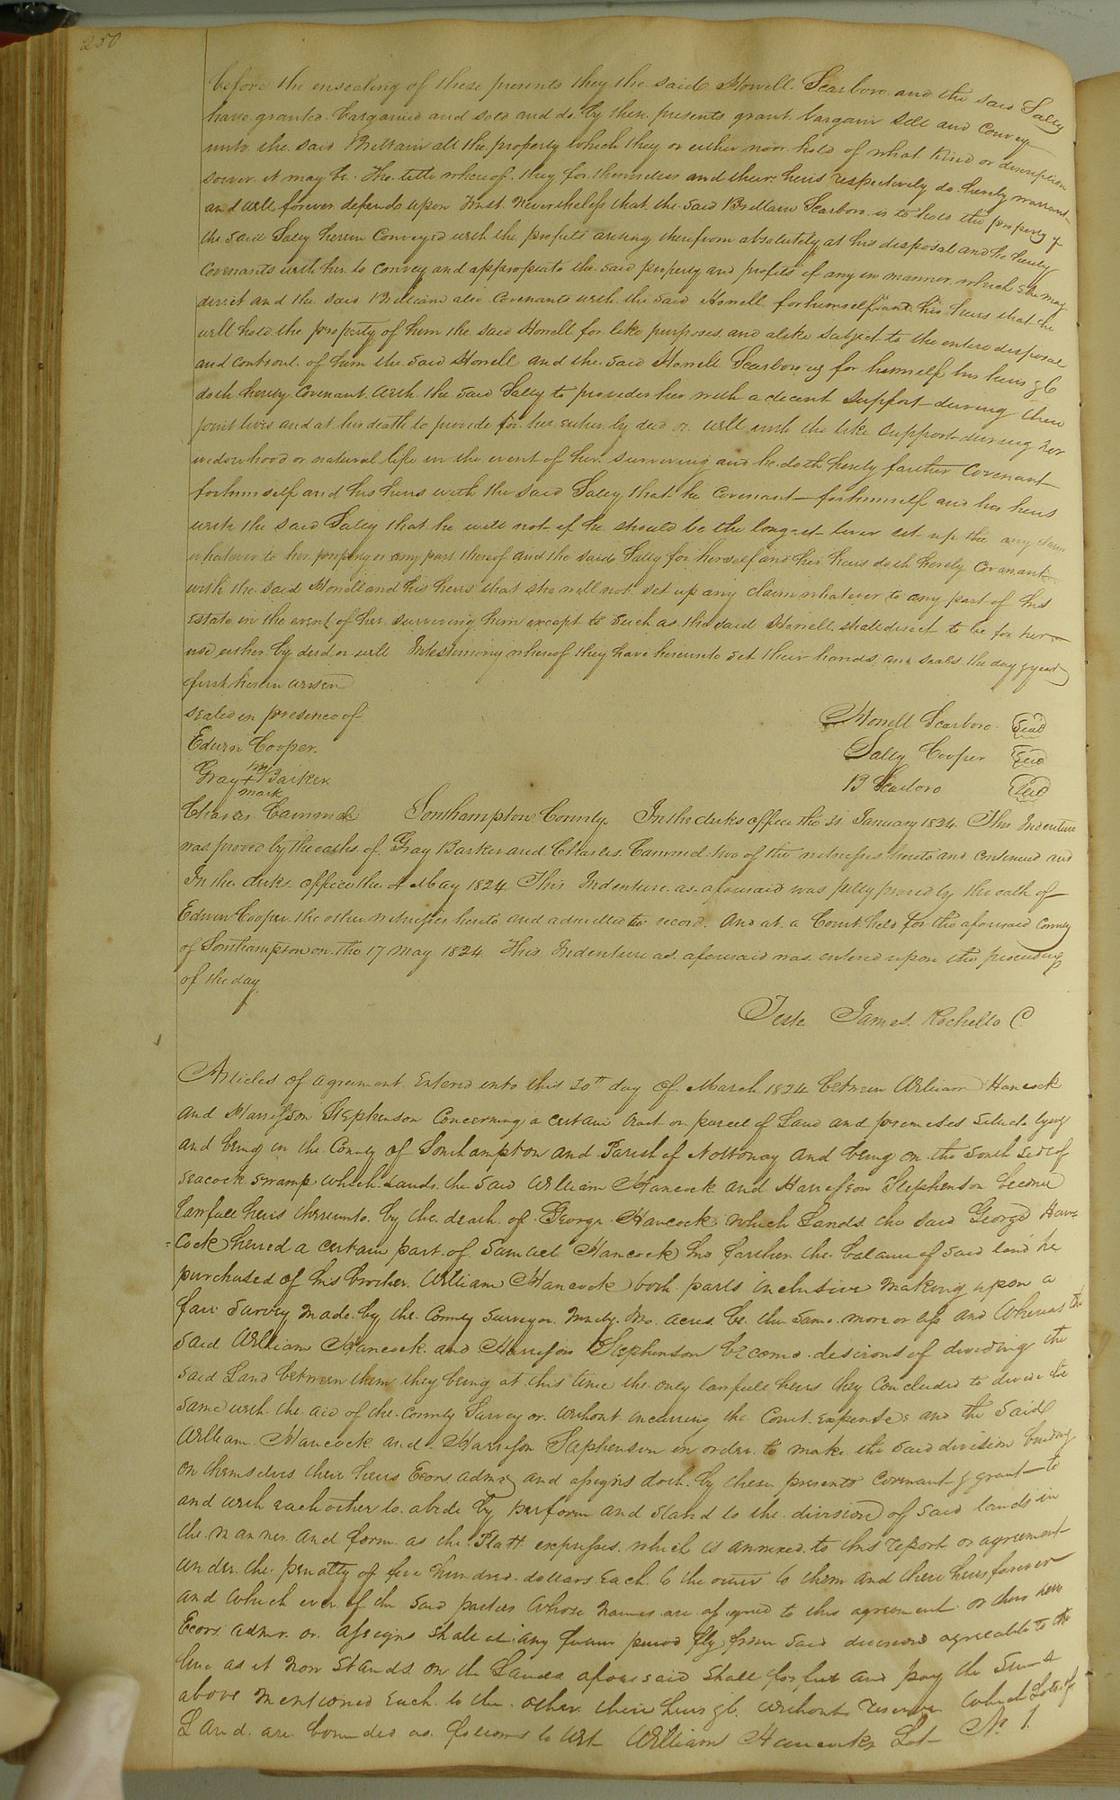 250
before the ensealing of these presents they the said Howell Scarboro and the said Sally
have granted bargained and sold and do by these presents grant bargain sell and convey
unto the said Brittain all the property which they or either now hold of what kind or description
soever it may be. The title whereof they for themselves and their heirs respectively do hereby warrant
and will forever defend upon Trust Nevertheless that the said Brittain Scarboro is to hold the property of
the said Sally herein Conveyed with the profits arising therefrom absolutely at his disposal and he hereby
Covenants with her to Convey and appropriate the said property and profits if any in manner which she may
direct and the said Brittain also Covenants with the said Howell for himself and his heirs that he
will hold the property of him the said Howell for like purposes and alike subject to the entire disposal
and controul of him the said Howell and the said Howell Scarboro for himself his heirs &c
doth hereby Covenant with the said Sally to provide her with a decent support during their
joint lives and at his death to provide for her either by deed or will with the like support during her
widowhood or natural life in the event of her surviving and he doth hereby farther Covenant
for himself and his heirs with the said Sally that he Covenant for himself and his heirs
with the said Sally that he will not if he should be the longest liver set up the any claim
whatever to her property or any part thereof and the said Sally for herself and her heirs doth hereby Covenant
with the said Howell and his heirs that she will not set up any claim whatever to any part of his
estate in the event of her surviving him except to such as the said Howell shall direct to be for her
use either by deed or will In testimony whereof they have hereunto set their hands and seals the day & year
first herein
sealed in presence of
Howell Scarboro Seal
Edwin Cooper
Sally Cooper Seal
Gray his + mark Barker
B Scarboro Seal
Charles Southampton County In the clerks office the 21 January 1824 This Indenture
was proved by the oaths of Gray Barker and Charles two of the witnesses hereto and continued and
In the clerks office the 4 May 1824 This Indenture as aforesaid was fully proved by the oath of
Edwin Cooper the other witness hereto and admitted to record. And at a Court held for the aforesaid County
of Southampton on the 17 May 1824 This Indenture as aforesaid was entered upon the proceedings
of the day
Teste James Rochelle C
Articles of agreement Entered into this 20th day of March 1824 between William Hancock
and Harrisson Stephenson Concerning a certain tract or parcel of Land and premises situate lying
and being in the County of Southampton and Parish of Nottoway and being on the South Side of
Seacock swamp which Lands the said William Hancock and Harrisson Stephenson become
Lawfull heirs thereunto by the death of George Hancock which Lands the said George Han
=cock heired a certain part of Samuel Hancock farther the balance of said land he
purchased of his brother William Hancock both parts inclusive making upon a
fair Survey made by the County Surveyor Ninety two acres be the same more or less and whereas the
said William Hancock and Harrisson Stephenson become desirous of dividing the
said Land between them they being at this time the only lawfull heirs they Concluded to devide the
same with the aid of the County Surveyor without incurring the Court expenses and the said
William Hancock and Harrisson Stephenson in order to make the said division binding
on themselves their heirs Exors admrs and assigns doth by these presents Covenant & grant to
and with each other to abide by perform and stand to the division of said lands in
the manner and form as the Platt expresses which is annexed to this report or agreement
under the penalty of five hundred dollars each to the other to them and their heirs forever
and which ever of the said parties whose names are assigned to this agreement or their heirs
Exors admr or assigns shall at any future period fly from said division agreeable to the
line as it now stands on the Lands aforesaid shall forfeit and pay the Sum
above mentioned each to the other their heirs &c without reserve which Lots of
Land are bounded as follows to wit William Hancocks Lot No 1